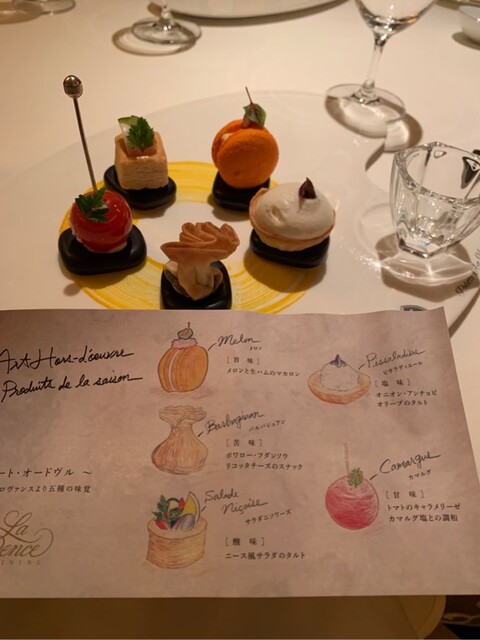 Art Hors-d'œuvre
Produits de la saison
ート・オードヴル ～
ロヴァンスより五種の味覚
La
ence
Melon
メロン
[ 旨 味 ]
メロンと生ハムのマカロン
Pissaladière
ピサラディエール
[ 塩 味 ]
オニオン・アンチョビ
オリーブのタルト
Barbagiuan
バルバジュアン
[ 苦 味 ]
ポワロー・フダンソウ
リコッタチーズのスナック
Camargue
カマルグ
[ 甘 味 ]
トマトのキャラメリーゼ
カマルグ塩との調和
Salade
Niçoise
サラダニソワーズ
[ 酸 味 ]
ニース風サラダのタルト